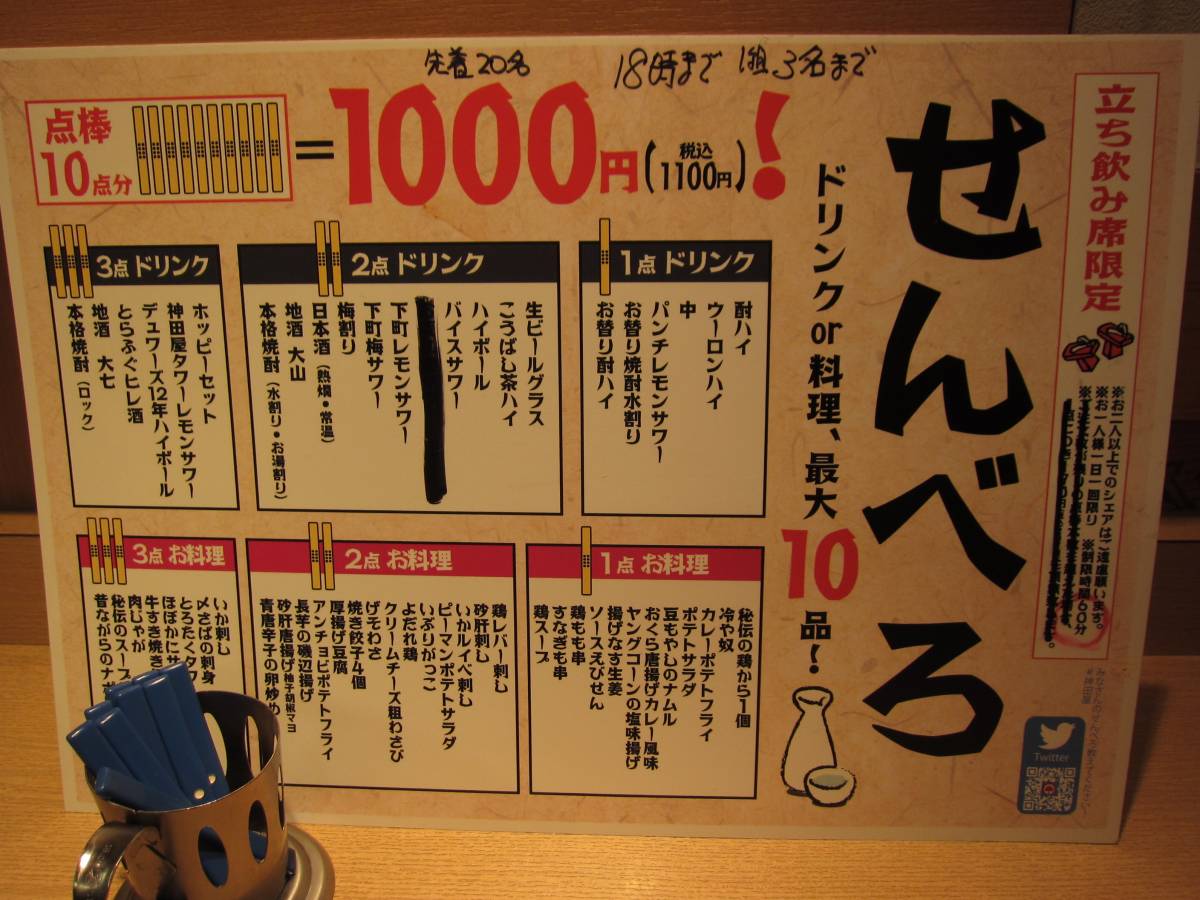 先着20名 18時まで 1組3名まで
立ち飲み席限定
※お二人以上でのシェアはご遠慮願います。
※お一人様一日一回限り ※制限時間60分
せんべろ
ドリンクor料理、最大10品!
点棒
10点分
=1000円(税込1100円)!
1点 ドリンク
酎ハイ
ウーロンハイ
中
パンチレモンサワー
お替り焼酎水割り
お替り酎ハイ
2点 ドリンク
生ビールグラス
こうばし茶ハイ
ハイボール
バイスサワー
下町レモンサワー
下町梅サワー
梅割り
日本酒(熱燗・常温)
地酒 大山
本格焼酎(水割り・お湯割り)
3点 ドリンク
ホッピーセット
神田屋タワーレモンサワー
デュワーズ12年ハイボール
とらふぐヒレ酒
地酒 大七
本格焼酎(ロック)
1点 お料理
秘伝の鶏から1個
冷や奴
カレーポテトフライ
ポテトサラダ
豆もやしのナムル
おくら唐揚げカレー風味
ヤングコーンの塩味揚げ
揚げなす生姜
ソースえびせん
鶏もも串
すなぎも串
鶏スープ
2点 お料理
鶏レバー刺し
砂肝刺し
いかルイベ刺し
ピーマンポテトサラダ
いぶりがっこ
よだれ鶏
クリームチーズ粗わさび
げそわさ
焼き餃子4個
厚揚げ豆腐
アンチョビポテトフライ
長芋の磯辺揚げ
砂肝唐揚げ柚子胡椒マヨ
青唐辛子の卵炒め
3点 お料理
いか刺し
〆さばの刺身
とろたくタワ
ほぼかにサ
牛すき焼き
肉じゃが
秘伝のスープ
昔ながらのナポ
みなさんのせんべろ教えてください!
#神田屋
Twitter